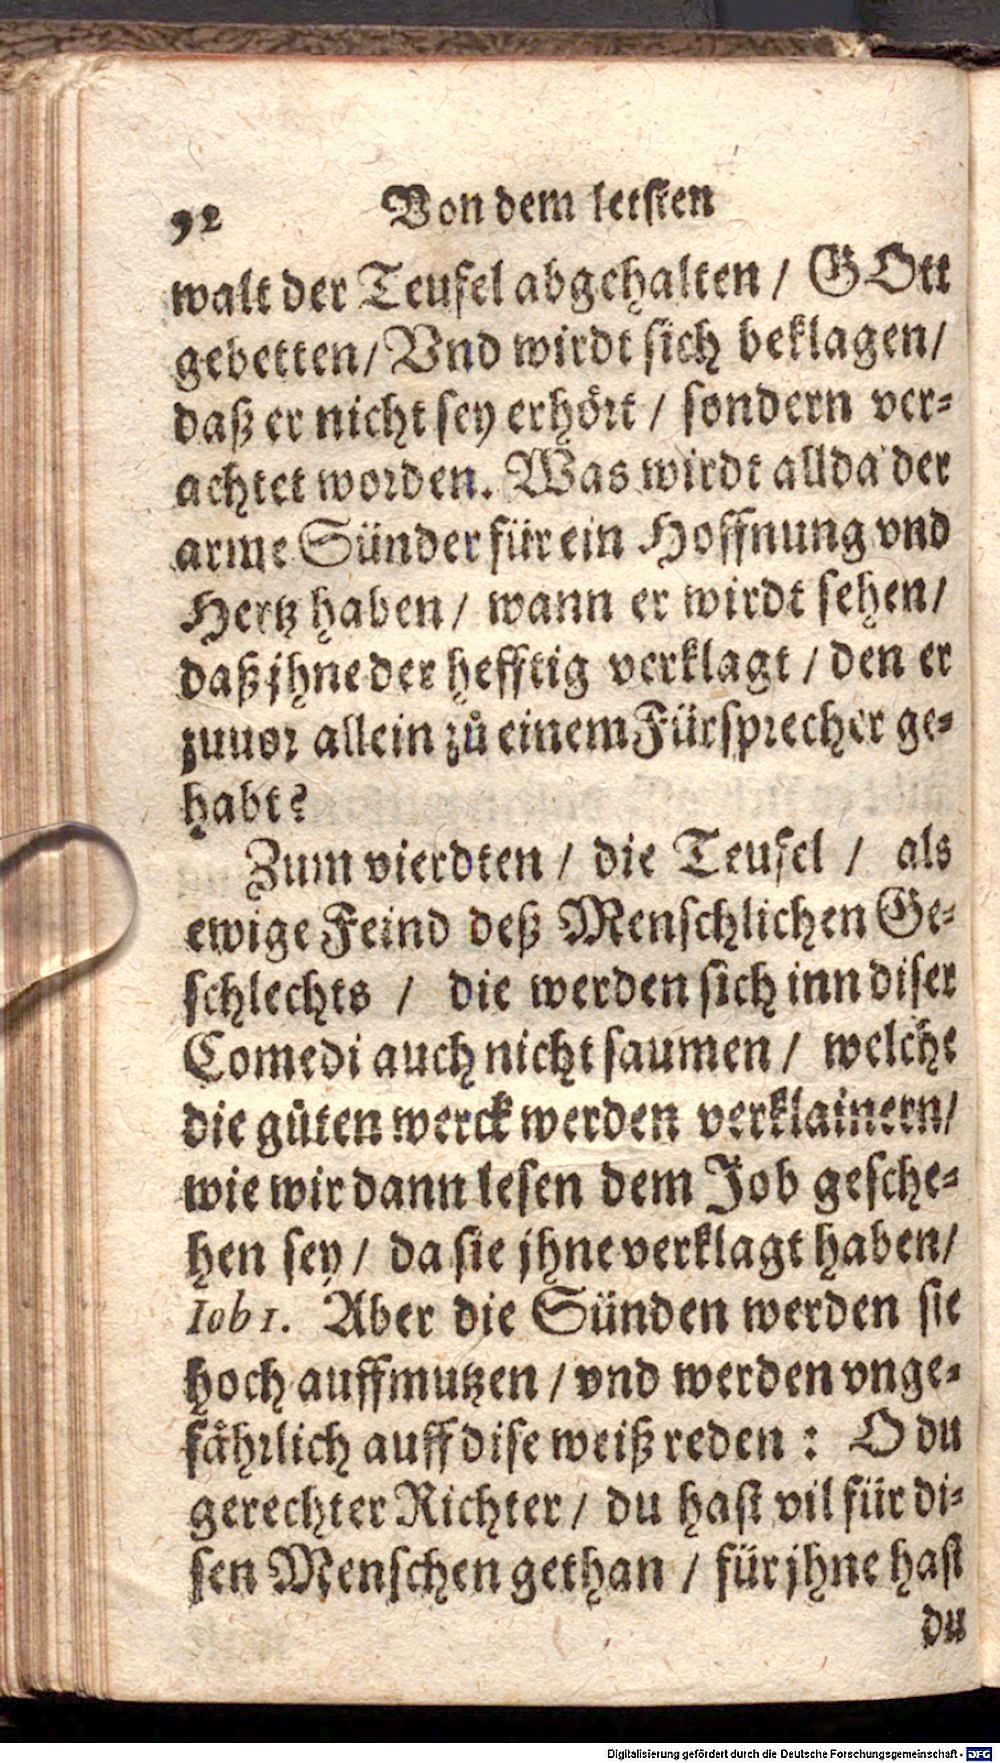 92 Von dem letsten
walt der Teufel abgehalten / GOtt
gebetten / Vnd wirdt sich beklagen /
daß er nicht sey erhört / sondern ver-
achtet worden. Was wirdt allda der
arme Sünder für ein Hoffnung vnd
Hertz haben / wann er wirdt sehen /
daß jhne der hefftig verklagt / den er
zuuor allein zů einem Fürsprecher ge-
habt?
Zum vierdten / die Teufel / als
ewige Feind deß Menschlichen Ge-
schlechts / die werden sich inn diser
Comedi auch nicht saumen / welche
die gůten werck werden verklainern /
wie wir dann lesen dem Job gesche-
hen sey / da sie jhne verklagt haben /
Iob 1. Aber die Sünden werden sie
hoch auffmutzen / vnd werden vnge-
fährlich auff dise weiß reden : O du
gerechter Richter / du hast vil für di-
sen Menschen gethan / für jhne hast
du
Digitalisierung gefördert durch die Deutsche Forschungsgemeinschaft - DFG